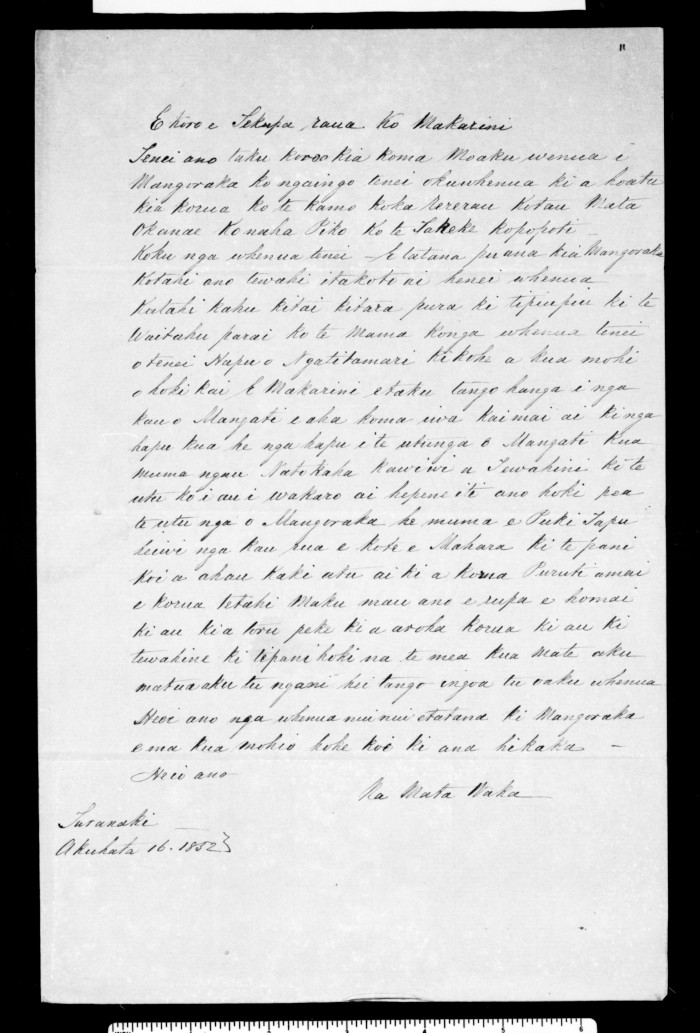 11
E koro e Tekupa raua ko Makarini
Tenei ano taku korero kia koma Moaku wenua i
Mangoraka ko ngaingo tenei okuwhenua ki a hoatu
kia korua ko te kamo koka rererau Kotau Mata
Okanae Ko naha Piko Ko te Takeke kopopoti -
Koku nga whenua tenei - E tatana pu ana kia Mangoraka
Kotahi ano tewahi itakoto ai henei whenua
Kutahi kahu kitai kitara pura ki tipiupiu ki te
Waitahu parai ko te Mama konga whenua tenei
o tenei Hapu o Ngatitamari ki kohe a kua mohi
o hoki kai E Makarini etaku tango hanga i nga
kau o Mangati e aha koma iwa kai mai ai ki nga
hapu kua he nga hapu i te utunga o Mangati kua
muma ngau Natokaha kawiwi a Tewahini ki te
utu ko i au i wakaro ai hepene iti ano hoki pea
te utu nga o Mangoraka he muma e Puki Tapu
heiwi nga kau rua e kote e Mahara ki te pani
koi a ahau kaki utu ai ki a korua Puruti amai
e korua tetahi Maku mau ano e rupa e homai
ki au kia toru peke ki a aroha korua ki au ki
tewahine ki tepani hoki na te mea kua mate aku
matua aku tu ngane hei tango ingoa tu oaku whenua
Heoi ano nga whenua nui nui otatana ki Mangoraka
ema kua mohio kohe koe ki ana hikaka -
Heoi ano
Na Mata Waka
Taranaki
Akuhata 16. 1852